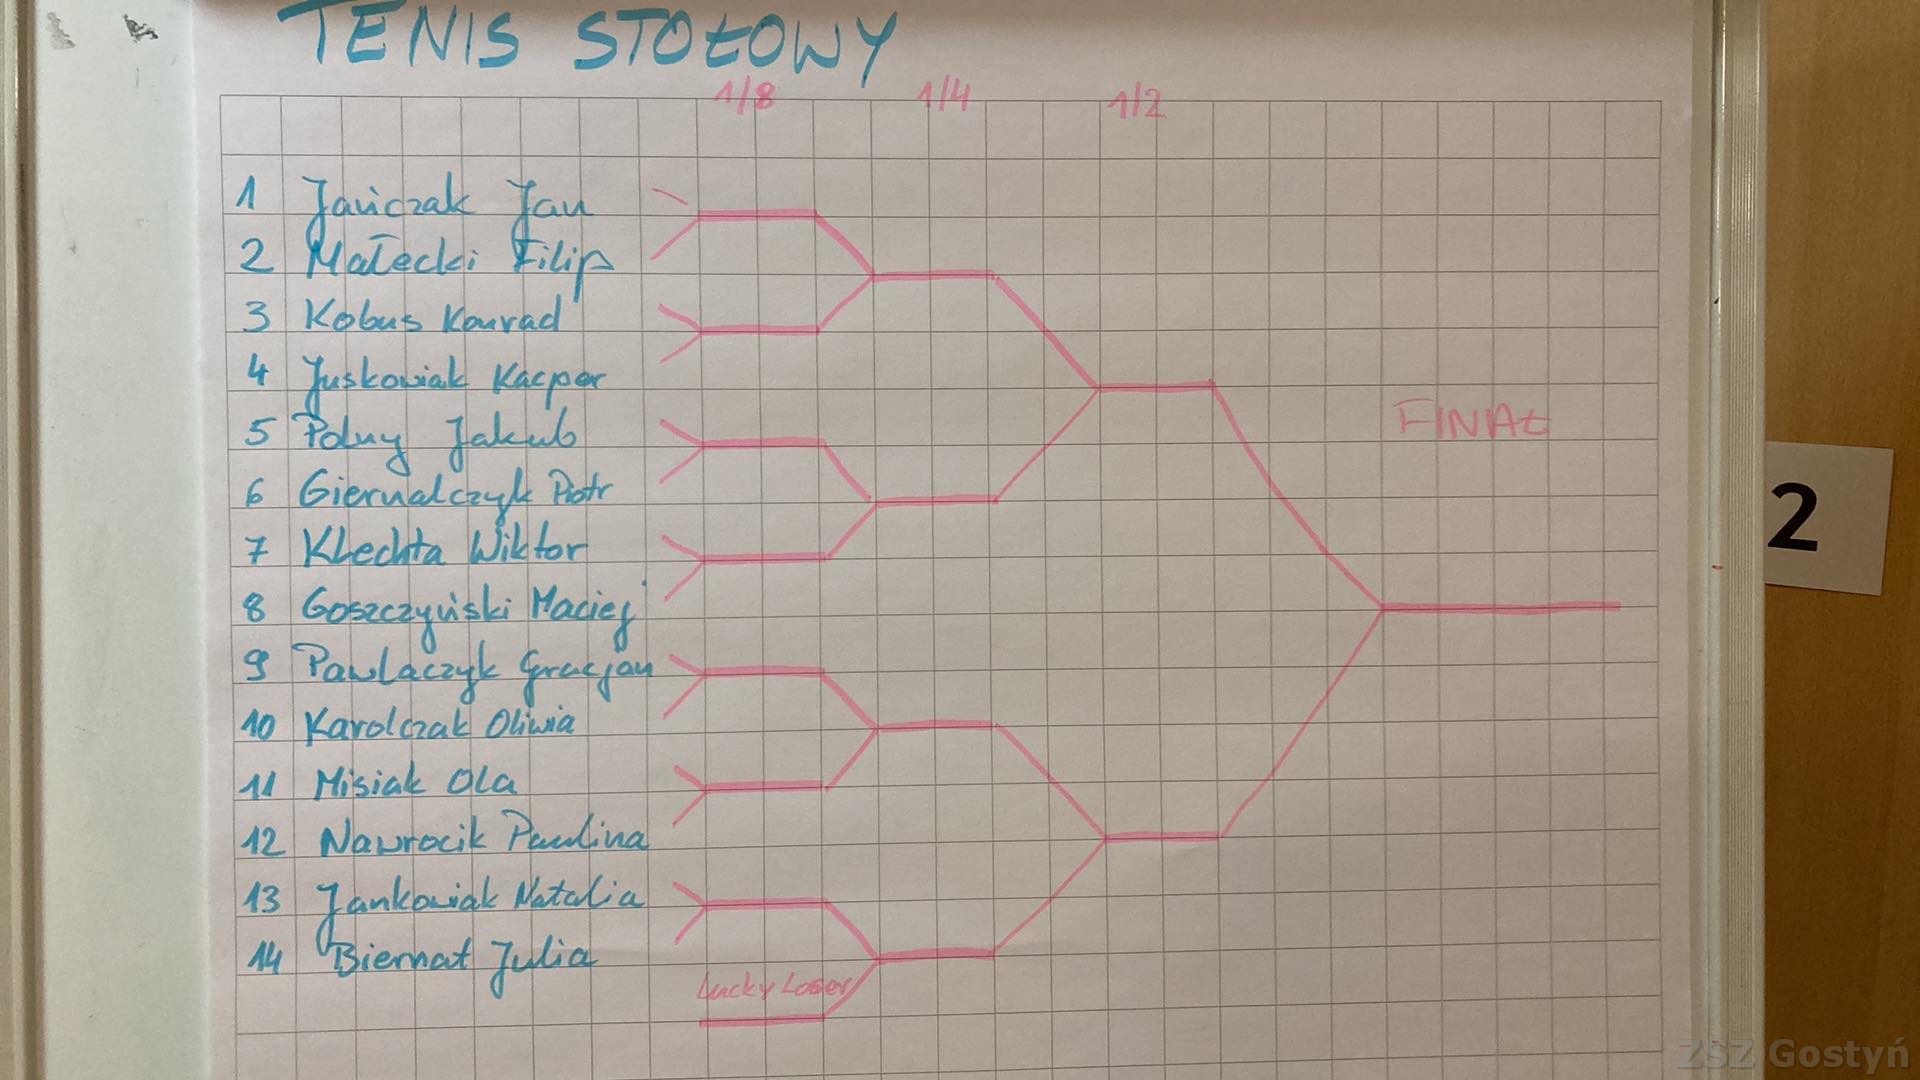 TENIS STOŁOWY
1/8 1/4 1/2
1 Jańczak Jan
2 Małecki Filip
3 Kobus Konrad
4 Juskowiak Kacper
FINAŁ
5 Polny Jakub
6 Giernalczyk Piotr
2
7 Klechta Wiktor
8 Goszczyński Maciej
9 Pawlaczyk Gracjan
10 Karolczak Oliwia
11 Misiak Ola
12 Nawrocik Paulina
13 Jankowiak Natalia
14 Biernat Julia
Lucky Loser
ZSZ Gostyń